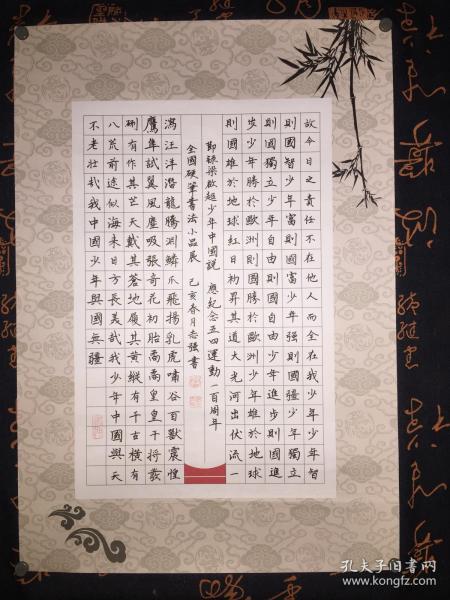 故今日之責任不在他人而全在我少年少年智
則國智少年富則國富少年强則國疆少年獨立
則國獨立少年自由則國自由少年進步則國進
步少年勝於歐洲則國勝於歐洲少年雄於地球
則國雄於地球紅日初昇其道大光河出伏流一
節録梁啟超少年中國說 應紀念五四運動一百周年
全國硬筆書法小品展 己亥春月志强書
瀉汪洋潛龍騰淵鱗爪飛揚乳虎嘯谷百獸震惶
鷹隼試翼風塵吸張奇花初胎矞矞皇皇干將發
硎有作其芒天戴其蒼地履其黃縱有千古橫有
八荒前途似海来日方長美哉我少年中國與天
不老壯哉我中國少年與國無疆
孔夫子旧书网
www.kongfz.com